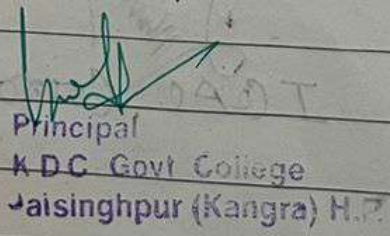 Principal
K D C Govt College
Jaisinghpur (Kangra) H.P.